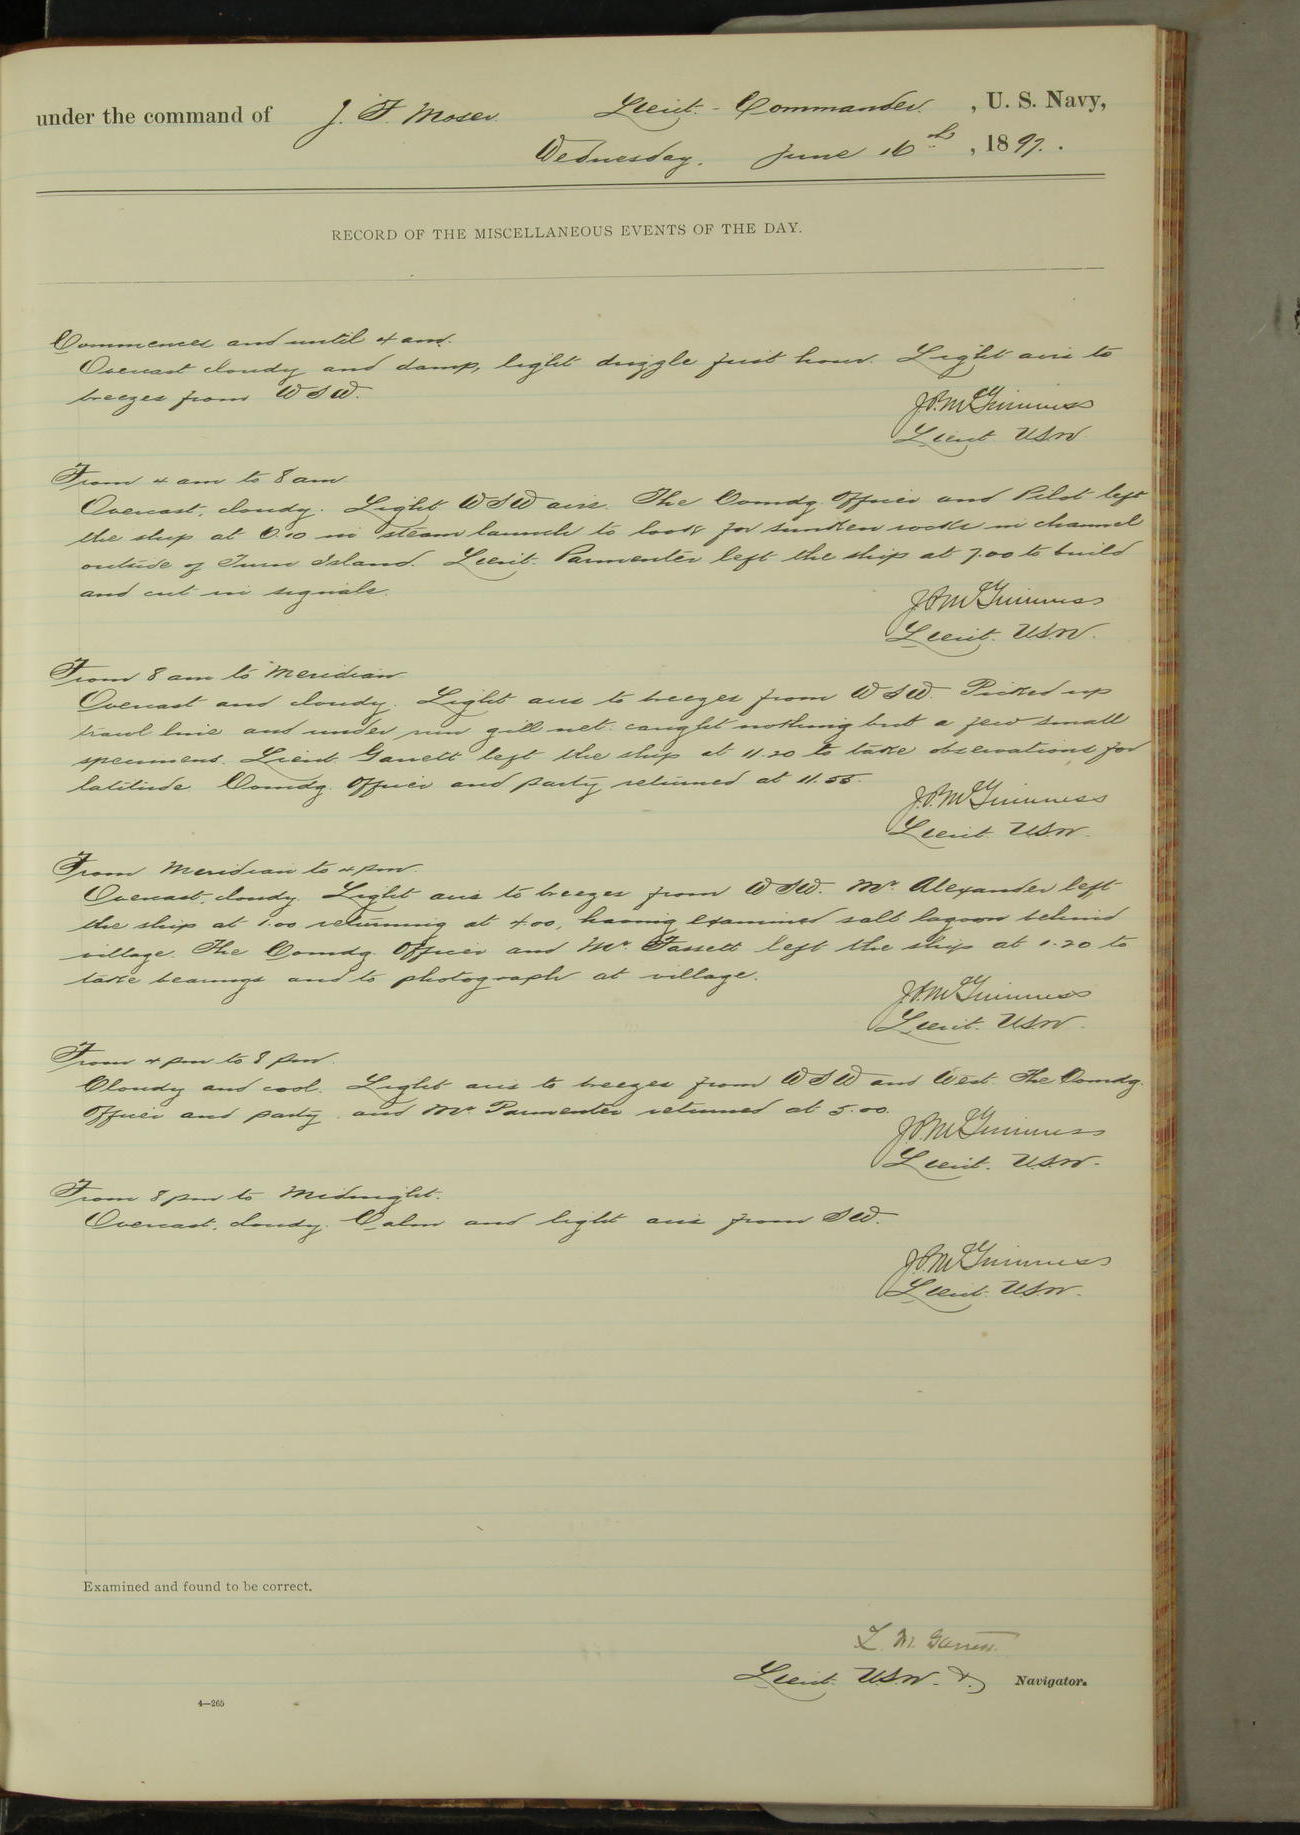 under the command of J. F. Moser Lieut. - Commander , U. S. Navy,
Wednesday, June 16th , 1897.
RECORD OF THE MISCELLANEOUS EVENTS OF THE DAY.
Commences and until 4 am.
Overcast cloudy and damp, light drizzle first hour. Light airs to
breezes from WSW.
Lieut USN
From 4 am to 8 am
Overcast, cloudy. Light WSW airs. The Comdg. Officer and Pilot left
the ship at 6.10 in steam launch to look for sunken rocks in channel
outside of Turn Island. Lieut. Parmenter left the ship at 7.00 to build
and cut in signals.
Lieut. USN.
From 8 am to Meridian
Overcast and cloudy. Light airs to breezes from WSW. Picked up
trawl line and under run gill net: caught nothing but a few small
specimens. Lieut. Garrett left the ship at 11.20 to take observations for
latitude. Comdg. Officer and party returned at 11.55.
Lieut. USN.
From Meridian to 4 pm.
Overcast, cloudy. Light airs to breezes from WSW. Mr. Alexander left
the ship at 1.00 returning at 4.00, having examined salt lagoon behind
village. The Comdg. Officer and Mr. Fassett left the ship at 1.20 to
take bearings and to photograph at village.
Lieut. USN.
From 4 pm to 8 pm.
Cloudy and cool. Light airs to breezes from WSW and West. The Comdg.
Officer and party and Mr. Parmenter returned at 5.00.
Lieut. USN.
From 8 pm to Midnight.
Overcast, cloudy. Calm and light airs from SW.
Lieut. USN.
Examined and found to be correct.
L. M. Garrett
Lieut. USN. & Navigator.
4—265